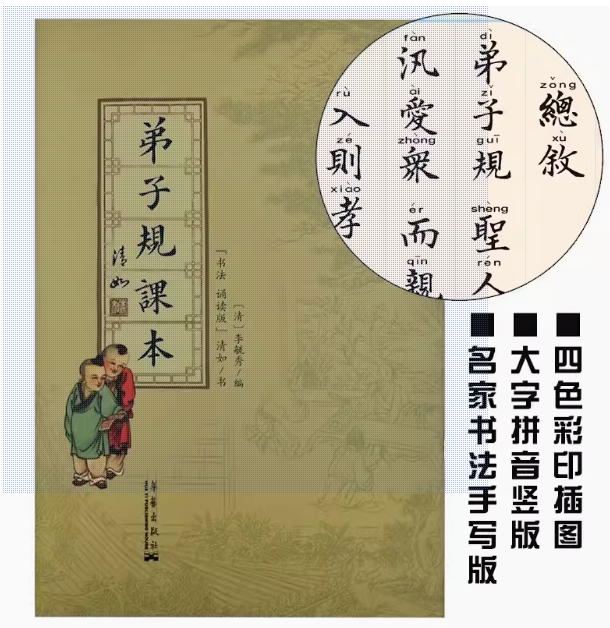 弟子規課本
清如
〔清〕李毓秀/编
「书法 诵读版」清如/书
華藝出版社
zǒng xù
總敘
dì zǐ guī shèng rén
弟子規 聖人
fàn ài zhòng ér qīn
汎愛衆 而親
rù zé xiào
入則孝
■四色彩印插图
■大字拼音竖版
■名家书法手写版